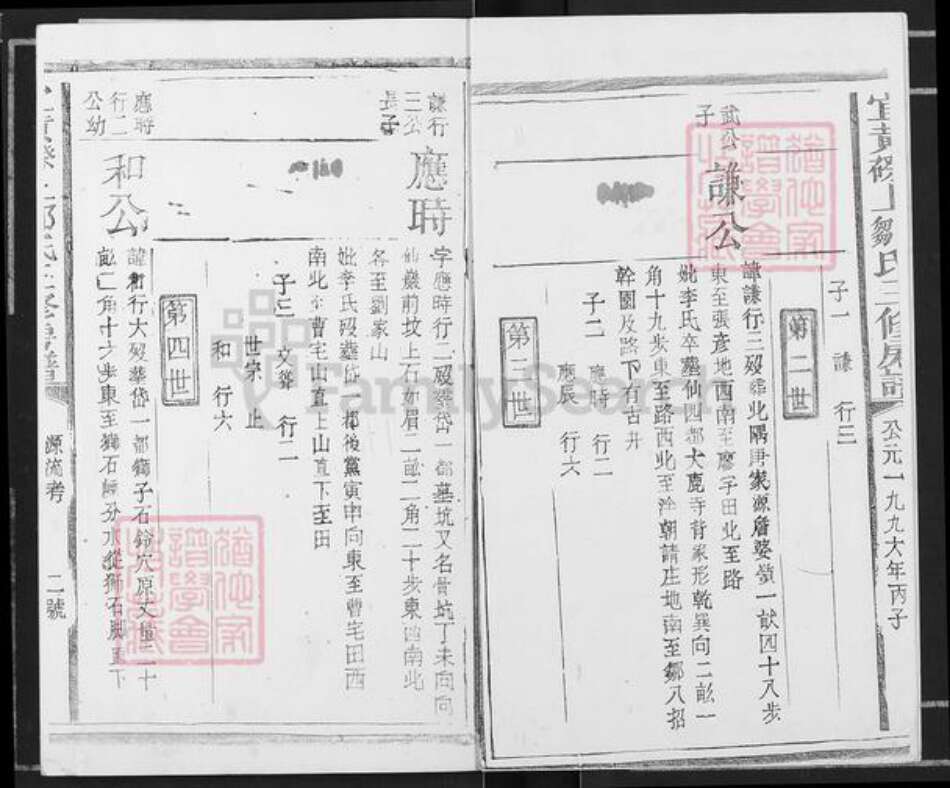 公元一九九六年丙子
子一 謙 行三
第二世
武公
子
謙公
諱謙行三歿葬北隅唐家源詹婆嶺一畝四十八步
東至張彦地西南至廖字田北至路
妣李氏卒葬仙四都大鹿寺背象形乾巽向二畝一
角十九步東至路西北至 朝請庄地南至鄒八招
幹園及路下有古井
子二 應時 行二
應辰 行六
第三世
謙行
三公
長子
應時
字應時行二歿葬岱一都墓坑又名骨坑丁未向向
仙巖前坟上石如眉二畝二角二十步東西南北
各至劉家山
妣李氏歿葬岱一都後黨寅申向東至曹宅田西
南北至曹宅山直上山直下至田
子三 文 行二
世宗 止
和 行六
第四世
應時
行二
公幼
和公
諱和行大歿葬岱一都獅子石 穴原丈量二十
畝二角十六步東至獅石 分水從獅石脚直下
源流考
二號
FamilySearch